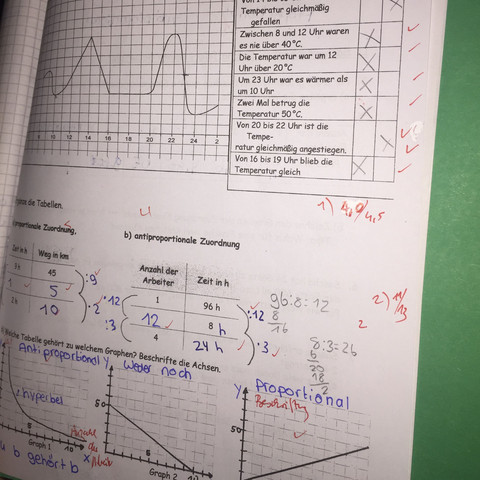 Temperatur gleichmäßig
gefallen
Zwischen 8 und 12 Uhr waren
es nie über 40°C.
Die Temperatur war um 12
Uhr über 20°C
Um 23 Uhr war es wärmer als
um 10 Uhr
Zwei Mal betrug die
Temperatur 50°C.
Von 20 bis 22 Uhr ist die
Tempe-
ratur gleichmäßig angestiegen.
Von 16 bis 19 Uhr blieb die
Temperatur gleich
8 10 12 14 16 18 20 22 24 2
1) 4,0/4,5
die Tabellen.
proportionale Zuordnung.
b) antiproportionale Zuordnung
Zeit in h Weg in km
45
1 5
2 h 10
:9
·2
Anzahl der Arbeiter Zeit in h
1 96 h
12 8 h
4 24 h
·12
:3
:12
·3
96:8=12
8
16
8:3=26
6
20
18
2
2) 11/13
2
Welche Tabelle gehört zu welchem Graphen? Beschrifte die Achsen.
Antiproportional
Weder noch
Proportional
Hyperbel
Beschriftung
Y
y
50
50
5
10
5
10
Anzahl
der
x
Graph 1
Graph 2
b gehört b